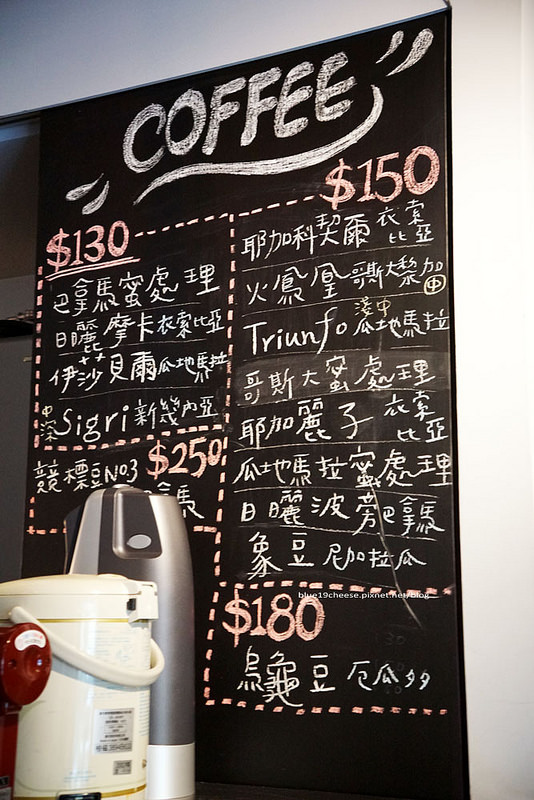 COFFEE
$130
巴拿馬蜜處理
日曬摩卡衣索比亞
伊莎貝爾瓜地馬拉
中深 Sigri 新幾內亞
$250
競標豆No.3
馬
$150
耶加科契爾 衣索比亞
火鳳凰 哥斯大黎加 中
Triunfo 淺中 瓜地馬拉
哥斯大蜜處理
耶加麗子 衣索比亞
瓜地馬拉蜜處理
日曬波旁巴拿馬
象豆 尼加拉瓜
blue19cheese.pixnet.net/blog
$180
烏龜豆 厄瓜多